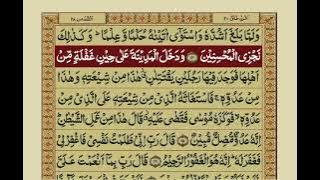 امن خلق ٢٠ القصص ٢٨
وَلَمَّا بَلَغَ اَشُدَّهٗ وَاسْتَوٰۤى اٰتَيْنٰهُ حُكْمًا وَّعِلْمًا ؕ وَكَذٰلِكَ
نَجْزِى الْمُحْسِنِيْنَ ۝ وَدَخَلَ الْمَدِيْنَةَ عَلٰى حِيْنِ غَفْلَةٍ مِّنْ
اَهْلِهَا فَوَجَدَ فِيْهَا رَجُلَيْنِ يَقْتَتِلٰنِ ۫ هٰذَا مِنْ شِيْعَتِهٖ وَهٰذَا
مِنْ عَدُوِّهٖ ۚ فَاسْتَغَاثَهُ الَّذِىْ مِنْ شِيْعَتِهٖ عَلَى الَّذِىْ مِنْ
عَدُوِّهٖ ۙ فَوَكَزَهٗ مُوْسٰى فَقَضٰى عَلَيْهِ ۫ قَالَ هٰذَا مِنْ عَمَلِ الشَّيْطٰنِ ؕ
اِنَّهٗ عَدُوٌّ مُّضِلٌّ مُّبِيْنٌ ۝ قَالَ رَبِّ اِنِّىْ ظَلَمْتُ نَفْسِىْ فَاغْفِرْ لِىْ
فَغَفَرَ لَهٗ ؕ اِنَّهٗ هُوَ الْغَفُوْرُ الرَّحِيْمُ ۝ قَالَ رَبِّ بِمَاۤ اَنْعَمْتَ عَلَىَّ